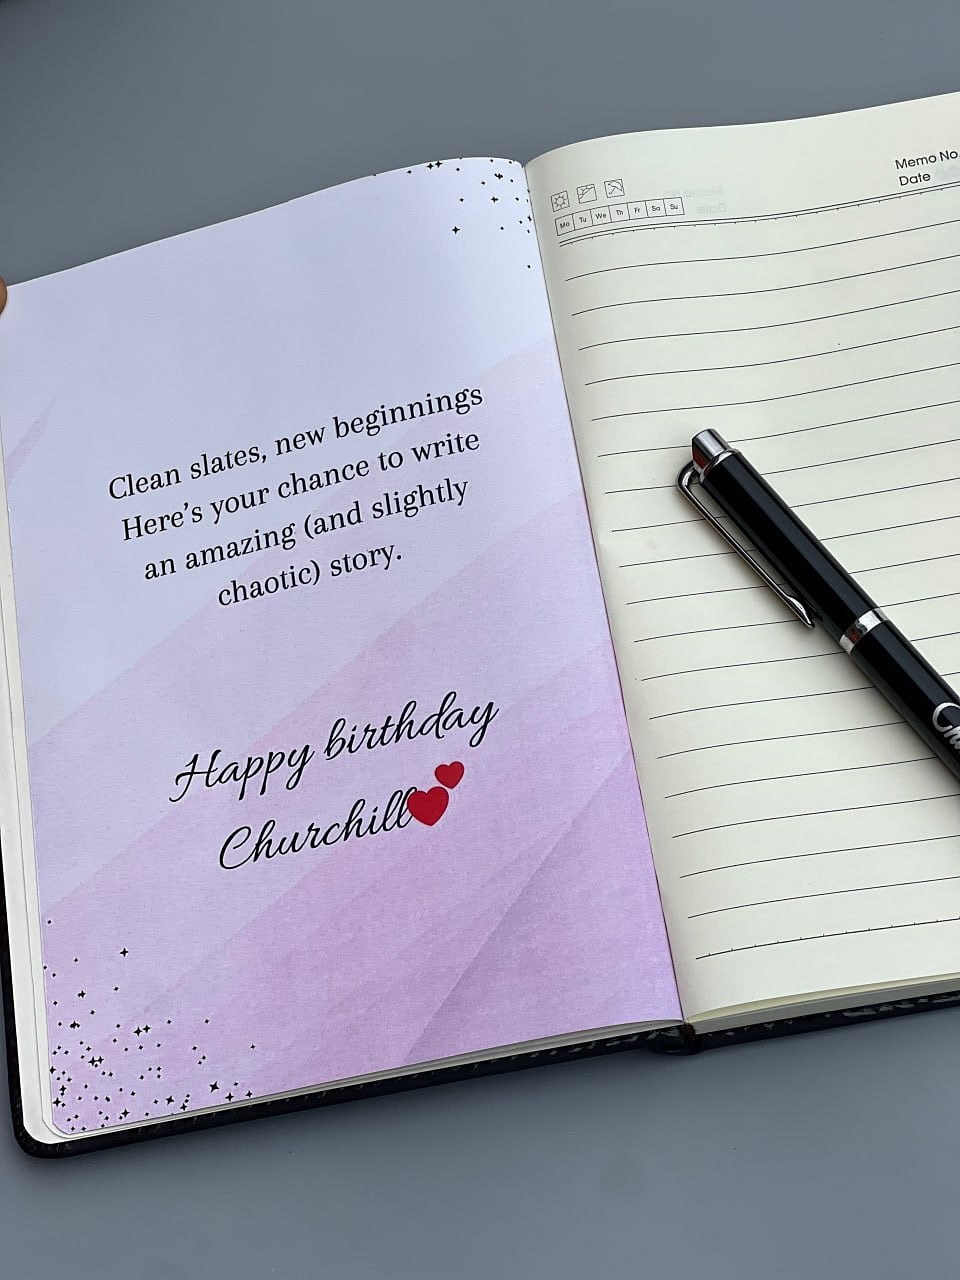 Clean slates, new beginnings
Here's your chance to write
an amazing (and slightly
chaotic) story.
Happy birthday
Churchill
Memo No.
Date
Mo Tu We Th Fr Sa Su